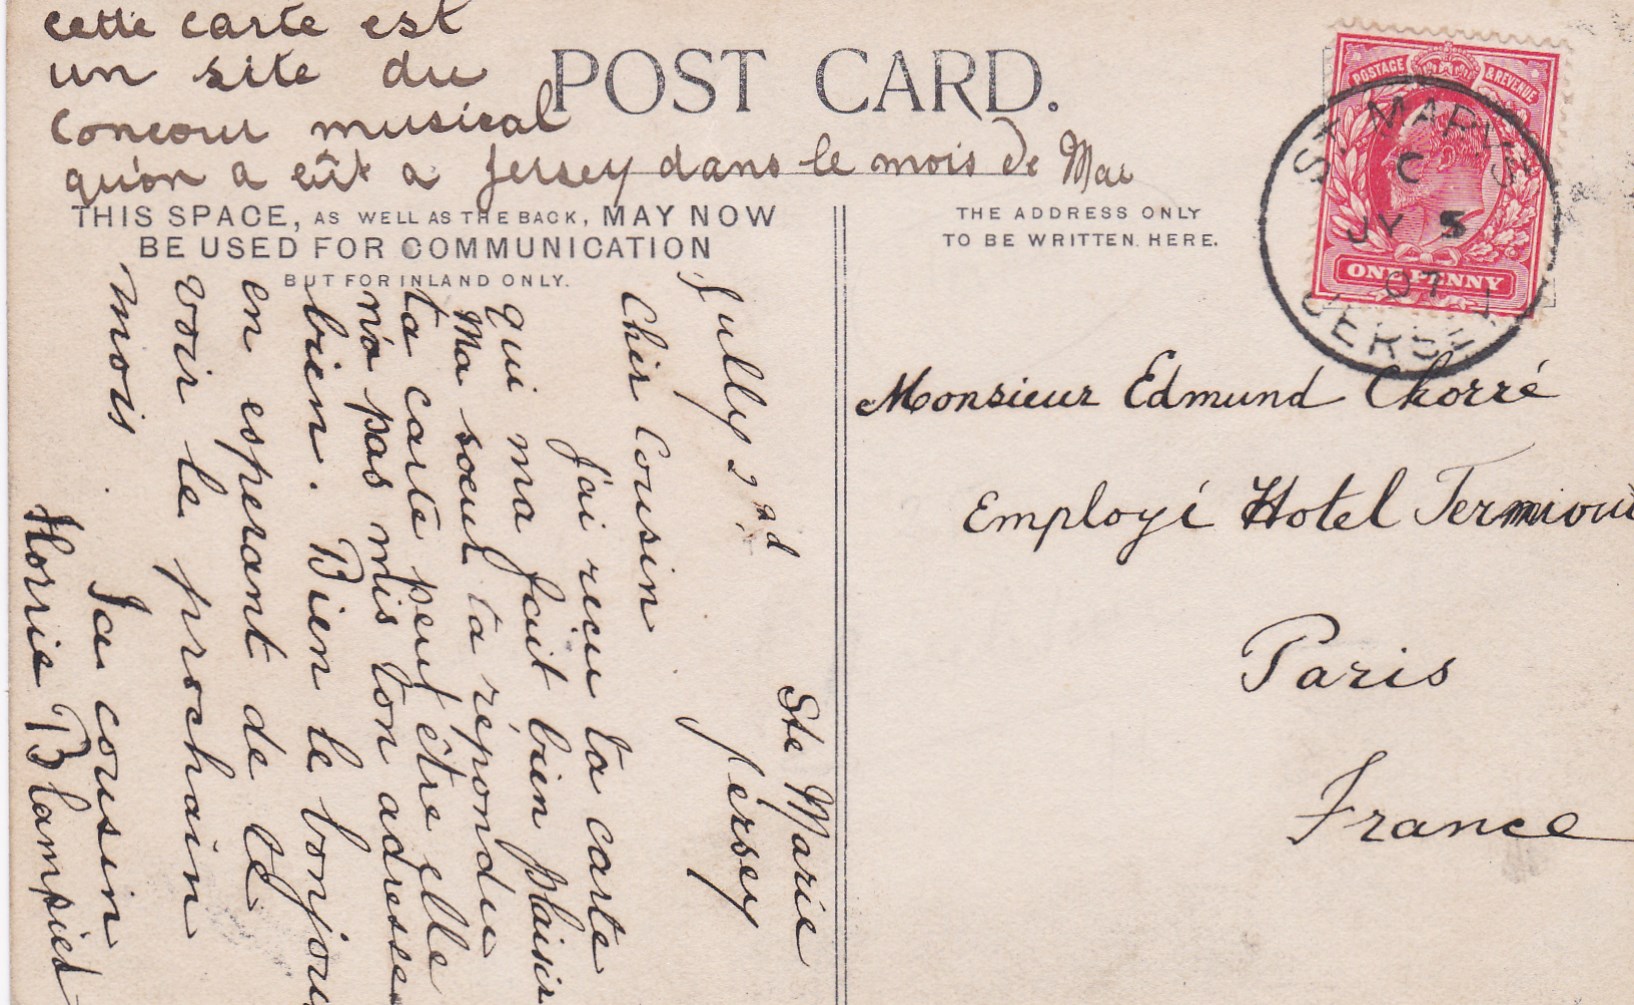 cette carte est
un site du
concour musical
qu'on a eût a Jersey dans le mois de Mai
POST CARD.
THIS SPACE, AS WELL AS THE BACK, MAY NOW
BE USED FOR COMMUNICATION
BUT FOR INLAND ONLY.
THE ADDRESS ONLY
TO BE WRITTEN HERE.
POSTAGE & REVENUE
ONE PENNY
ST MARY'S
C
JY 5
07
JERSEY
Ste Marie
Jérsey
Jully 2nd
Cher Cousin
J'ai recu ta carte
qui ma fait bien plaisir
Ma soeur ta répondu
ta carte peut être elle
n'a pas mis ton adresse
bien. Bien le bonjour
en esperant de te
voir le prochain
mois
Ta cousin
Florrie Blampied
Monsieur Edmund Chorré
Employé Hotel
Paris
France